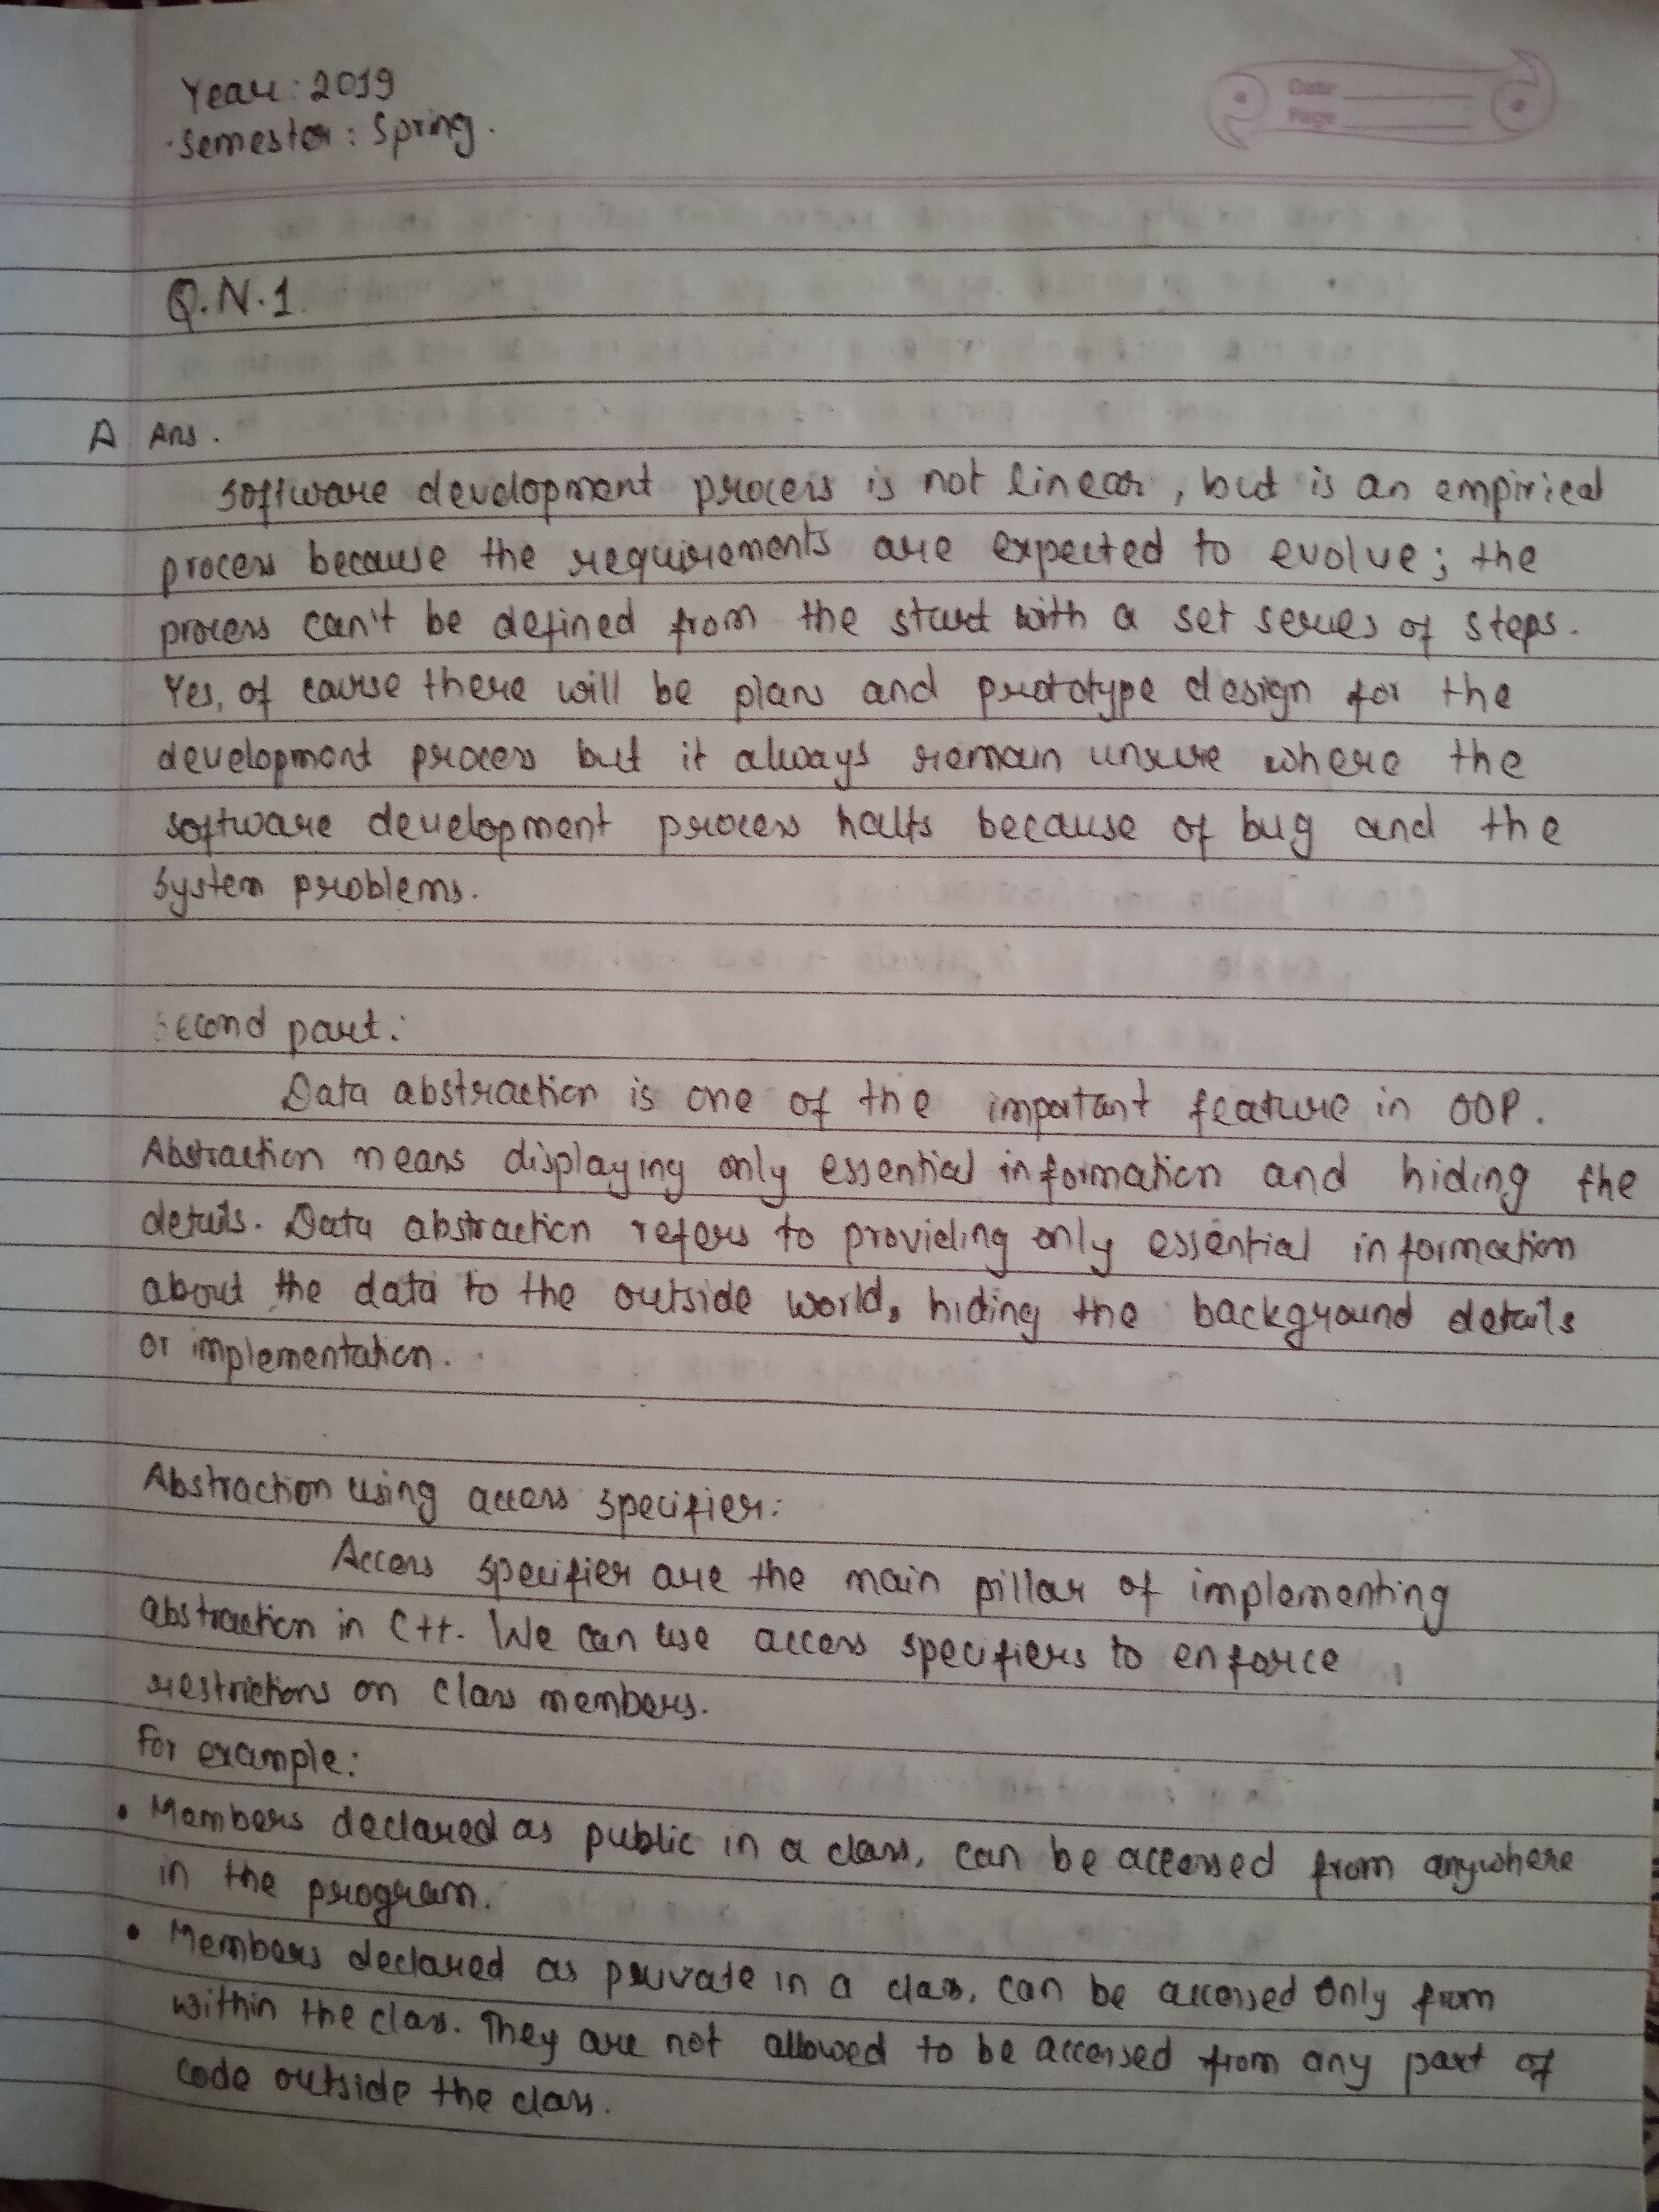 Year: 2019
Semester: Spring.
Date
Page
Q.N.1
A Ans.
Software development process is not linear, but is an empirical
process because the requirements are expected to evolve; the
process can't be defined from the start with a set series of steps.
Yes, of course there will be plans and prototype design for the
development process but it always remain unsure where the
software development process halts because of bug and the
system problems.
Second part:
Data abstraction is one of the important feature in OOP.
Abstraction means displaying only essential information and hiding the
details. Data abstraction refers to providing only essential information
about the data to the outside world, hiding the background details
or implementation.
Abstraction using access specifier:
Access specifier are the main pillar of implementing
abstraction in C++. We can use access specifiers to enforce
restrictions on class members.
For example:
• Members declared as public in a class, can be accessed from anywhere
in the program.
• Members declared as private in a class, can be accessed only from
within the class. They are not allowed to be accessed from any part of
code outside the class.